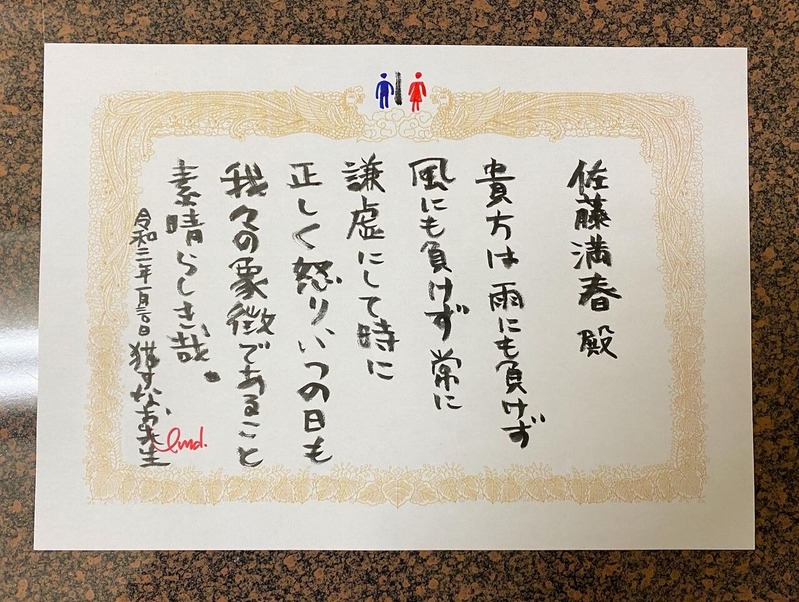 佐藤満春 殿
貴方は雨にも負けず
風にも負けず常に
謙虚にして時に
正しく怒りいつの日も
我々の象徴であること
素晴らしき哉。
令和三年一月三日 猫すなお先生